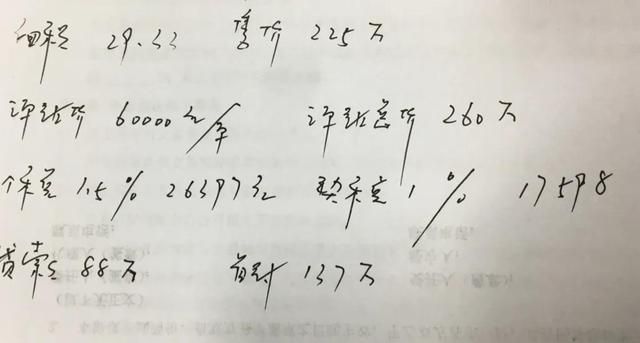 面积 29.33 售价 225万
评估价 60000元/平 评估总价 260万
个税 1.5% 26397元 契税 1% 17598
贷款 88万 首付 137万